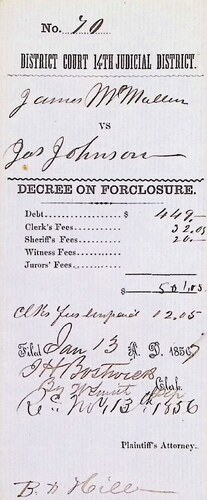 No. 70
DISTRICT COURT 14TH JUDICIAL DISTRICT.
James McMullen
VS
Jas Johnson
DECREE ON FORECLOSURE.
Debt $ 449.-
Clerk's Fees 32.05
Sheriff's Fees 20.-
Witness Fees
Jurors' Fees
$ 501.05
Clks Fees unpaid 12.05
Filed Jan 13 A. D. 1857
J H Bostwick
By Clerk.
Nov 13th 1856
Plaintiff's Attorney.
B D Hill